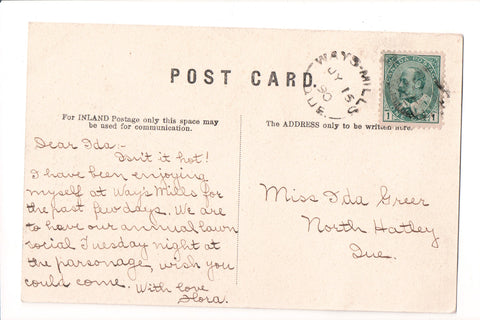 POST CARD.
WAYS-MILLS
JY 15
QUE
CANADA POSTAGE
1 1
For INLAND Postage only this space may
be used for communication.
The ADDRESS only to be written here.
Dear Ida:-
Isn't it hot!
I have been enjoying
myself at Way's Mills for
the past few days. We are
to have our annual lawn
social Tuesday night at
the parsonage, wish you
could come. With love
Flora.
Miss Ida Greer
North Hatley
Que.